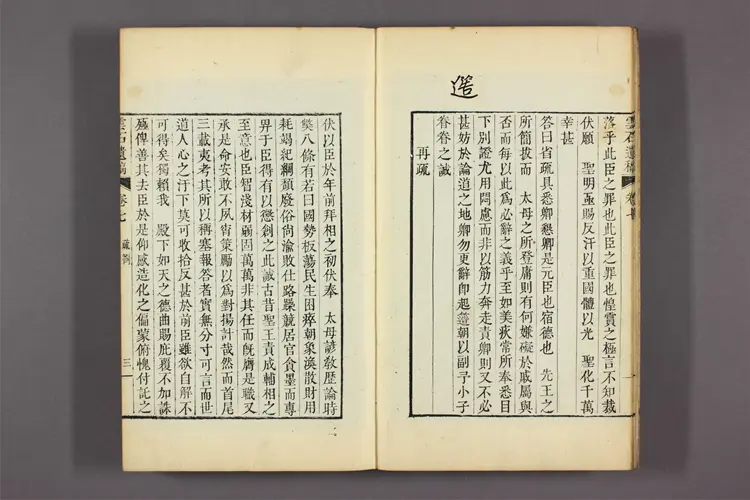 落乎此臣之罪也此臣之罪也惶霣之極言不知裁
伏願 聖明亟賜反汗以重國體以光 聖化千萬
幸甚
答曰省疏具悉卿懇卿是元臣也宿德也 先王之
所簡拔而 太母之所登庸則有何嫌礙於戚屬與
否而每以此爲必辭之義乎至如美疢常所奉悉目
下別證尤用悶慮而非以筋力奔走責卿則又不必
甚妨於論道之地卿勿更辭卽起造朝以副予小子
眷眷之誠
再疏
伏以臣於年前拜相之初伏奉 太母諺敎歷論時
獘八條有若曰國勢板蕩民生困瘁朝象渙散財用
耗竭紀綱頹廢俗尙渝敗仕路躁競居官貪墨而專
畀于臣得有以懲創之此誠古昔聖王責成輔相之
至意也臣智淺材弱固萬萬非其任而旣膺是職又
承是命安敢不夙宵策勵以爲對揚計哉然而首尾
三載夷考其所以稱塞報答者實無分寸可言而世
道人心之汙下莫可收拾反甚於前臣雖欲自解不
可得矣獨賴我 殿下如天之德曲賜庇覆不加誅
殛俾善其去臣於是仰感造化之偏蒙俯愧付託之
雲石遺稿 卷七 疏箚 三